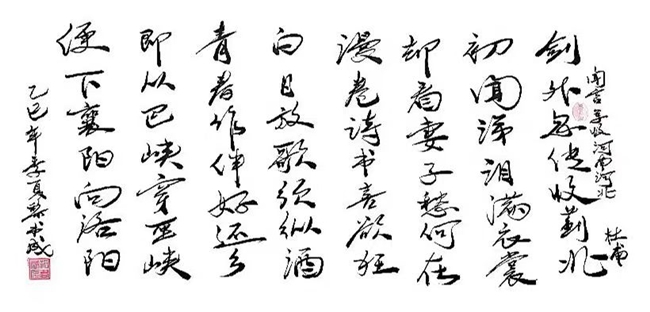 闻官军收河南河北
杜甫
剑外忽传收蓟北
初闻涕泪满衣裳
却看妻子愁何在
漫卷诗书喜欲狂
白日放歌须纵酒
青春作伴好还乡
即从巴峡穿巫峡
便下襄阳向洛阳
乙巳年季夏